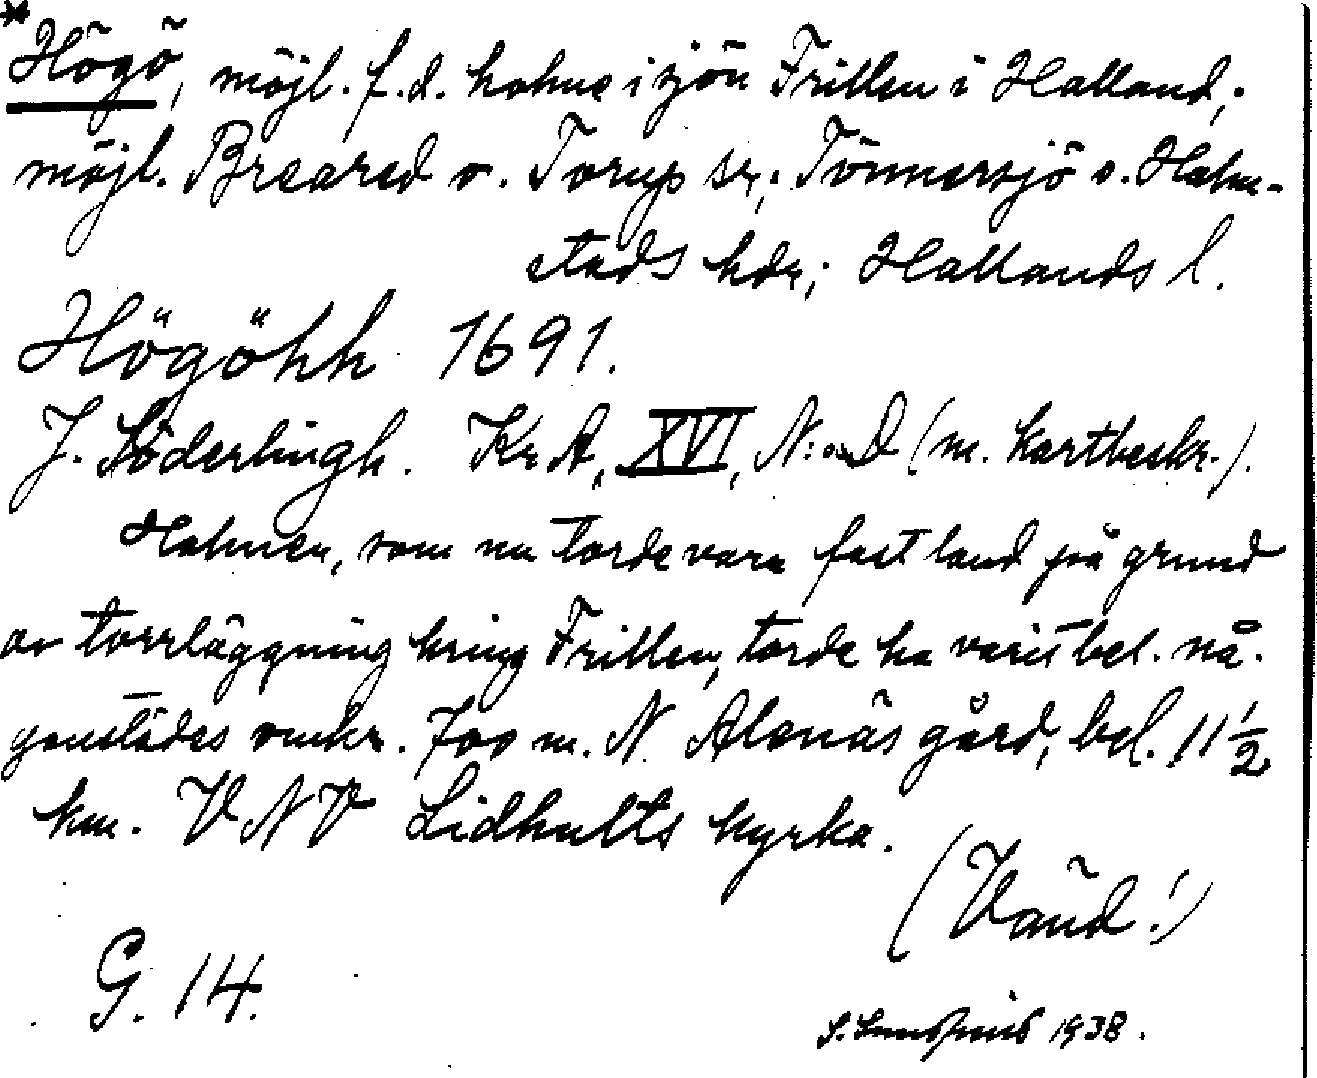 *Högö, möjl. f.d. holme i sjön Frillen i Halland;
möjl. Breared o. Torup sr; Tönnersjö o. Halm-
stads hdr; Hallands l.
Högöhh 1691.
J. Söderlingh. KrA, XVI, N:o D (m. kartbeskr.).
Holmen, som nu torde vara fast land på grund
av torrläggning kring Frillen, torde ha varit bel. nå-
gonstädes omkr. 700 m. N Alenäs gård, bel. 11 1/2
km. VNV Lidhults kyrka.
(Vänd!)
G. 14.
1938.